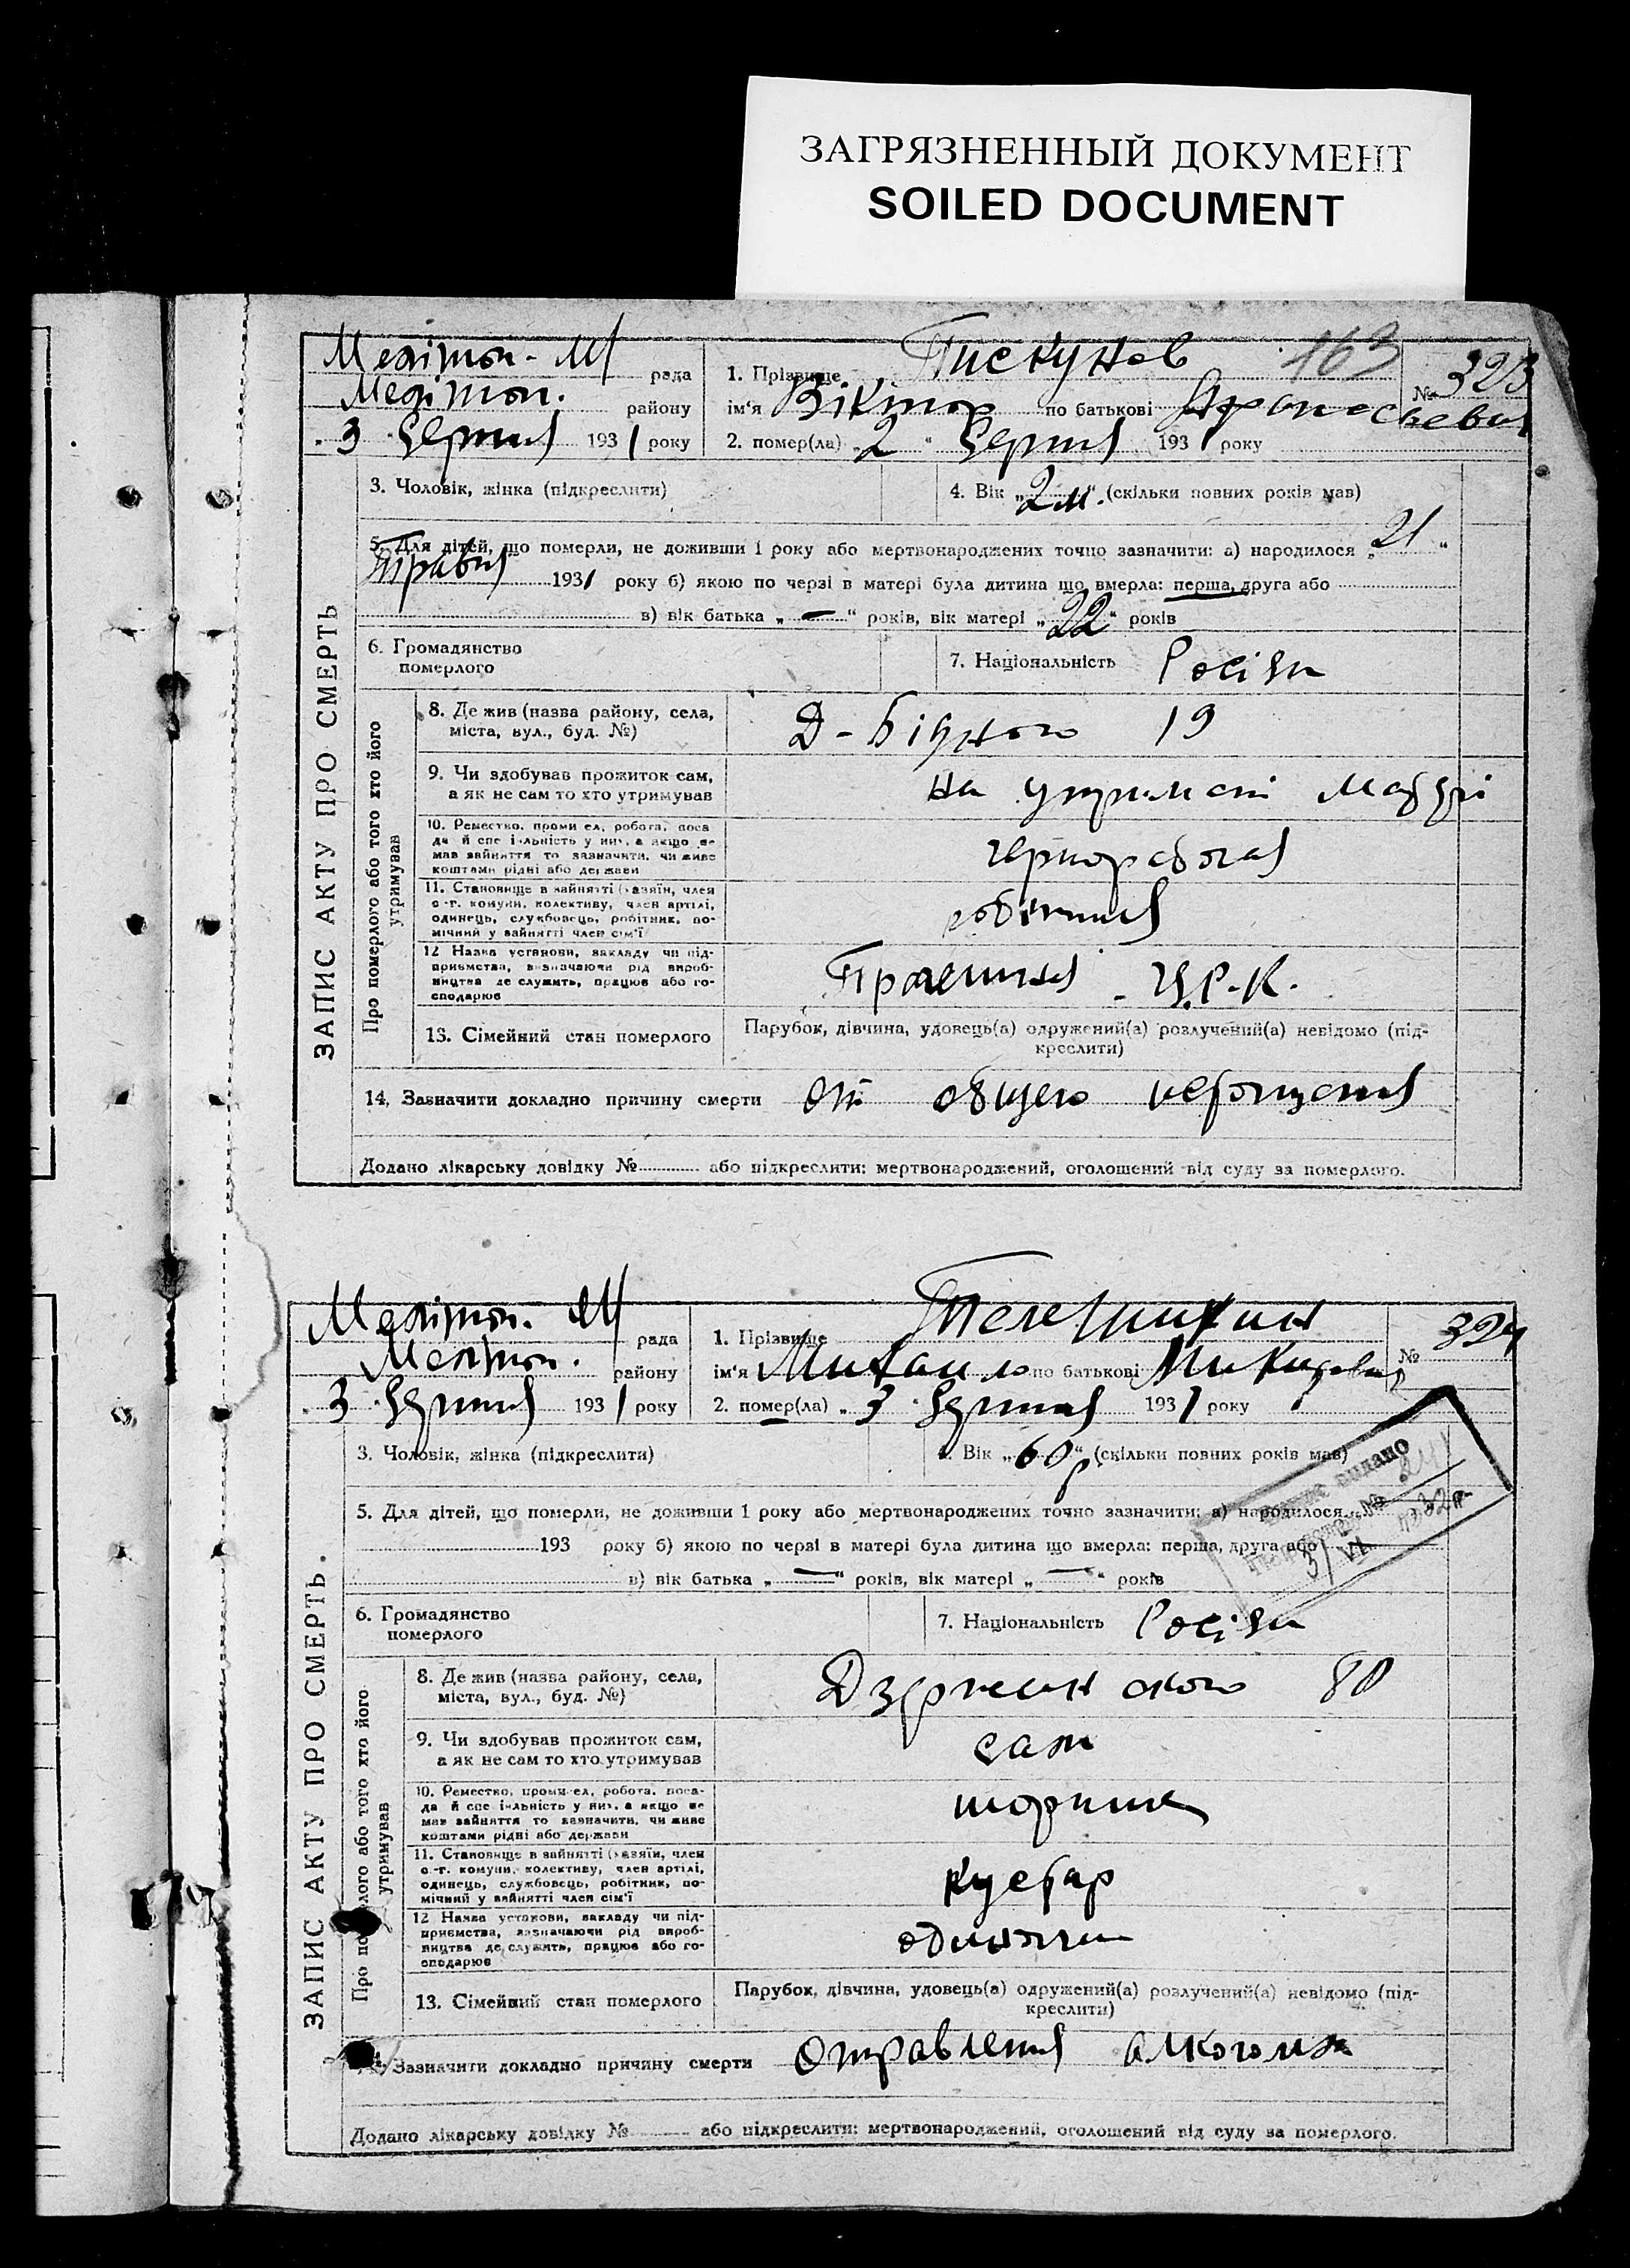 ЗАГРЯЗНЕННЫЙ ДОКУМЕНТ
SOILED DOCUMENT
ЗАПИС АКТУ ПРО СМЕРТЬ
Меліtoп. М/ рада
Меліtoп. району
3 Червня 1931 року
1. Прізвище Пискунов 163 № 323
ім'я Віктор по батькові
2. помер(ла) „2“ Червня 1931 року
3. Чоловік, жінка (підкреслити)
4. Вік „2 м.“ (скільки повних років мав)
5. Для дітей, що померли, не доживши 1 року або мертвонароджених точно зазначити: а) народилося „21“
Травня 1931 року б) якою по черзі в матері була дитина що вмерла: перша, друга або
в) вік батька „—“ років, вік матері „22“ років
6. Громадянство
померлого
7. Національність Росіян
Про померлого або того хто його
утримував
8. Де жив (назва району, села,
міста, вул., буд. №)
Д-Бідного 19
9. Чи здобував прожиток сам,
а як не сам то хто утримував
на утриманні матері
10. Ремество, промисел, робота, поса-
да й спеціяльність у них, а якщо не
мав зайняття то зазначити, чи живе
коштами рідні або держави
чернорабочая
11. Становище в зайнятті (хазяїн, член
с.-г. комуни, колективу, член артілі,
одинець, службовець, робітник, по-
мічний у зайнятті член сім'ї
робітниця
12 Назва установи, закладу чи під-
приємства, зазначаючи рід вироб-
ництва де служить, працює або го-
сподарює
Ц.Р.К.
13. Сімейний стан померлого
Парубок, дівчина, удовець(а) одружений(а) розлучений(а) невідомо (під-
креслити)
14. Зазначити докладно причину смерти от общего
Додано лікарську довідку № або підкреслити: мертвонароджений, оголошений від суду за померлого.
ЗАПИС АКТУ ПРО СМЕРТЬ.
Меліtoп. М/ рада
Меліtoп. району
3 Червня 1931 року
1. Прізвище № 324
ім'я Михаило по батькові Микитович
2. помер(ла) „3 Червня 1931 року
3. Чоловік, жінка (підкреслити)
4. Вік „60 р“ (скільки повних років мав)
5. Для дітей, що померли, не доживши 1 року або мертвонароджених точно зазначити: а) народилося
193 року б) якою по черзі в матері була дитина що вмерла: перша, друга або
в) вік батька „—“ років, вік матері „—“ років
видано
№
3/VI 1932 р.
6. Громадянство
померлого
7. Національність Росіян
Про померлого або того хто його
утримував
8. Де жив (назва району, села,
міста, вул., буд. №)
Дзержинского 80
9. Чи здобував прожиток сам,
а як не сам то хто утримував
сам
10. Ремество, промисел, робота, поса-
да й спеціяльність у них, а якщо не
мав зайняття то зазначити, чи живе
коштами рідні або держави
11. Становище в зайнятті (хазяїн, член
с.-г. комуни, колективу, член артілі,
одинець, службовець, робітник, по-
мічний у зайнятті член сім'ї
кустар
12 Назва установи, закладу чи під-
приємства, зазначаючи рід вироб-
ництва де служить, працює або го-
сподарює
13. Сімейний стан померлого
Парубок, дівчина, удовець(а) одружений(а) розлучений(а) невідомо (під-
креслити)
Зазначити докладно причину смерти Отравления алкоголем
Додано лікарську довідку № або підкреслити: мертвонароджений, оголошений від суду за померлого.